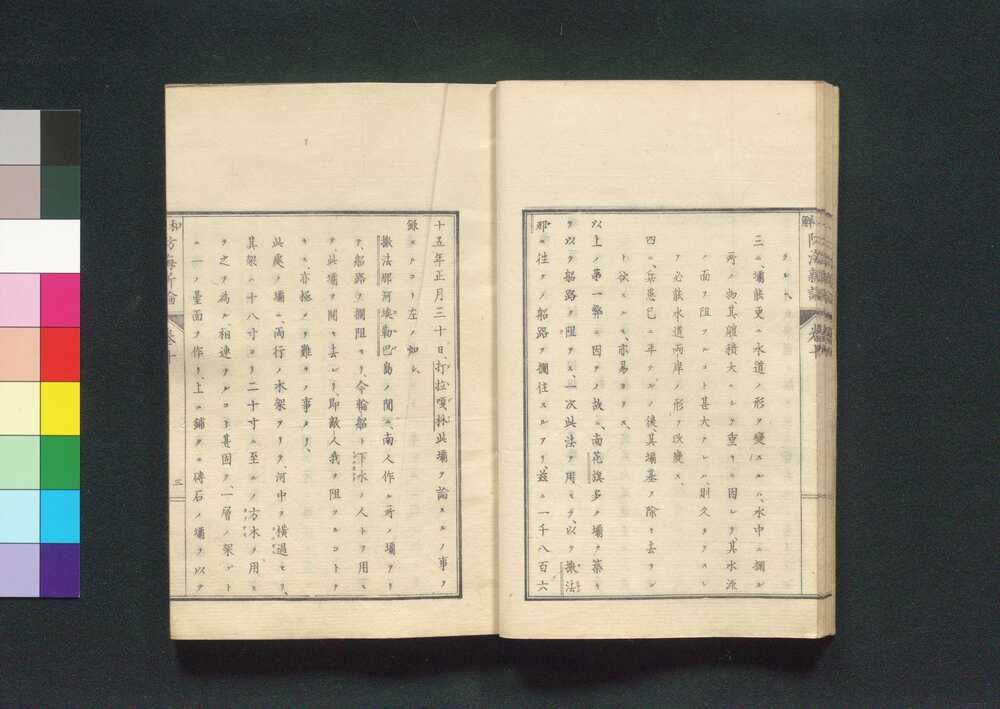 タル丨
三ニ壩能更ニ水道ノ形ヲ變スルハ、水中ニ攔ル
所ノ物其體積大ニシテ重キニ因レリ、其水流
ノ面ヲ阻フルコト甚大ナレハ、則久クタスレ
ハ必能水道兩岸ノ形ヲ改變ス、
四ニ兵患已ニ平ケルノ後、其壩基ヲ除キ去ラン
ト欲スルモ、亦易カラス、
以上ノ第一弊ニ因テノ故ニ、南花旗多ク壩ヲ築キ
テ以テ船路ヲ阻ス、一次此法ヲ用テ、以テ撒法
那ニ往クノ船路ヲ攔住スルアリ、茲ニ一千八百六
十五年正月三十日、打拉嘎林此壩ヲ論スルノ事ヲ
錄スルコト左ノ如シ、
撒法那河埃勒巴島ノ間ニ、南人作ル所ノ壩アリ
テ、船路ヲ攔阻セリ、今輪船ト下水ノ人トヲ用
テ、此壩ヲ開キ去レリ、即敵人我ヲ阻フルコトナ
キモ、亦極メテ難キノ事ナリ、
此處ノ壩ニ、兩行ノ木架アリテ、河中ヲ橫過セリ、
其架ハ十八寸ヨリ二十寸ニ至ルノ方木ヲ用ヒ
テ之ヲ為ル、相連ナルコト甚固ク、一層ノ架コト
ニ一ノ臺面ヲ作リ、上ニ鋪クニ磚石ノ壩ヲ以テ